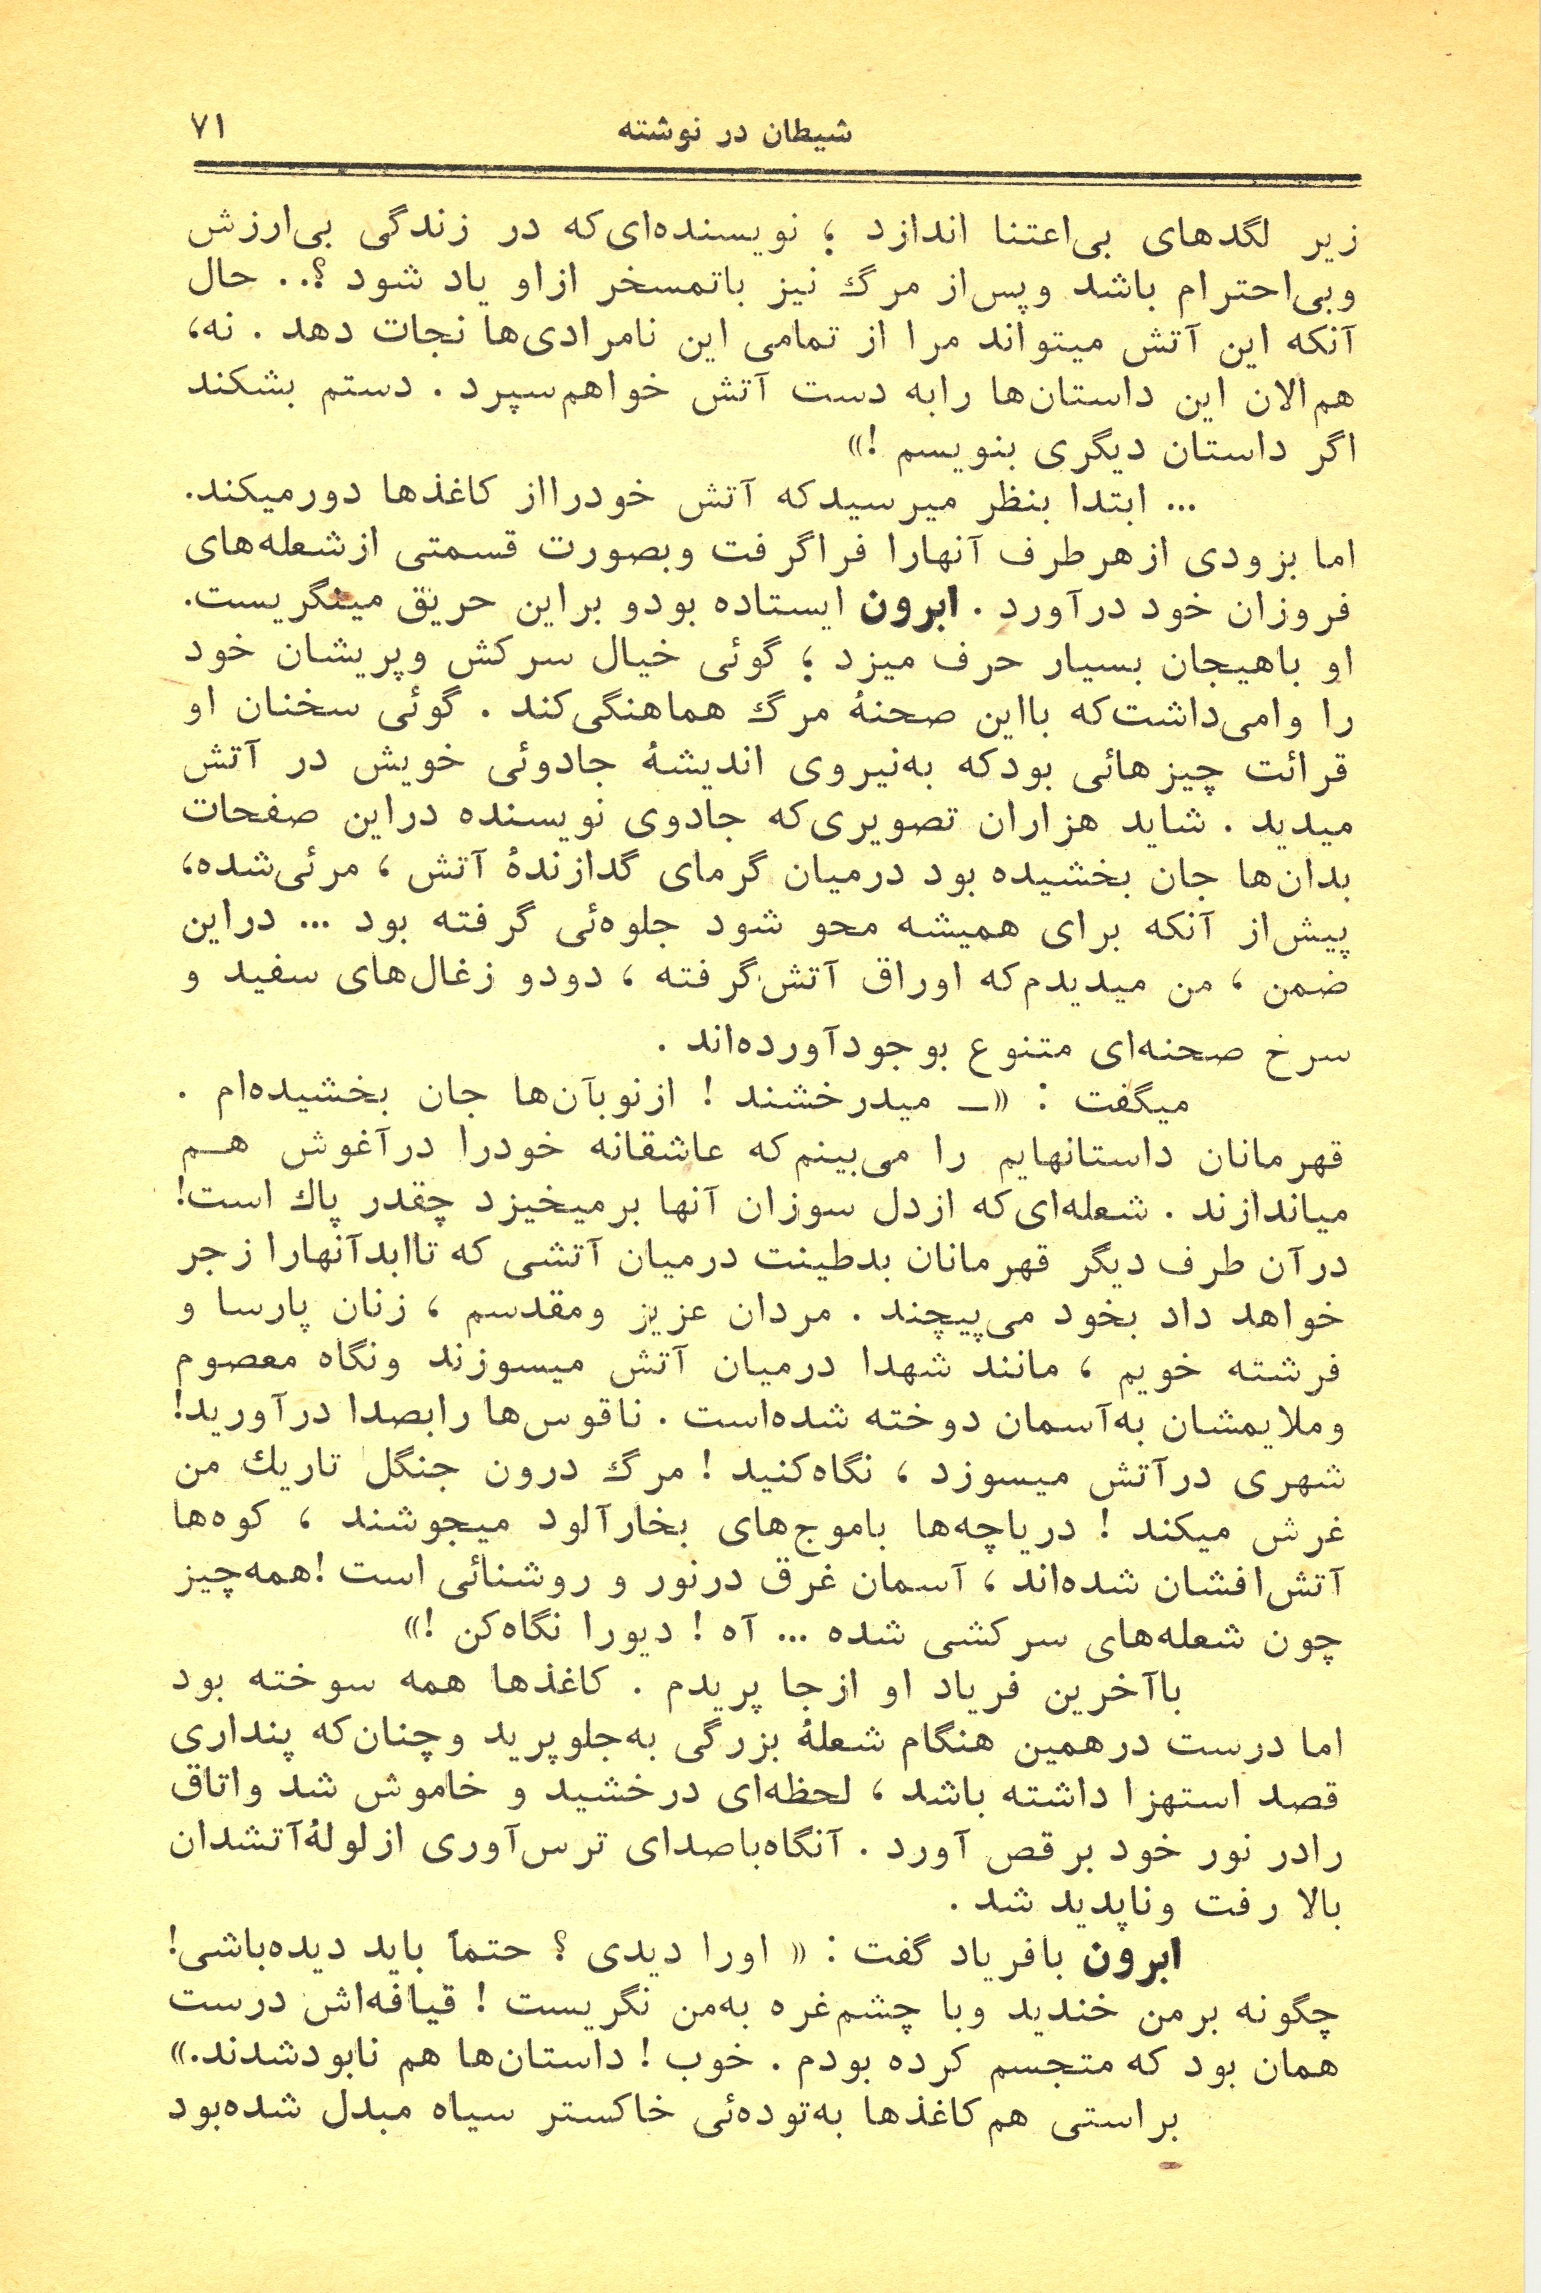 شیطان در نوشته ۷۱
زیر لگدهای بی‌اعتنا اندازد ؛ نویسنده‌ای‌که در زندگی بی‌ارزش
وبی‌احترام باشد وپس‌از مرگ نیز باتمسخر ازاو یاد شود ؟.. حال
آنکه این آتش میتواند مرا از تمامی این نامرادی‌ها نجات دهد . نه،
هم‌الان این داستان‌ها رابه دست آتش خواهم‌سپرد . دستم بشکند
اگر داستان دیگری بنویسم !»
... ابتدا بنظر میرسیدکه آتش خودرااز کاغذها دورمیکند.
اما بزودی ازهرطرف آنهارا فراگرفت وبصورت قسمتی ازشعله‌های
فروزان خود درآورد . ابرون ایستاده بودو براین حریق مینگریست.
او باهیجان بسیار حرف میزد ؛ گوئی خیال سرکش وپریشان خود
را وامی‌داشت‌که بااین صحنهٔ مرگ هماهنگی‌کند . گوئی سخنان او
قرائت چیزهائی بودکه به‌نیروی اندیشهٔ جادوئی خویش در آتش
میدید . شاید هزاران تصویری‌که جادوی نویسنده دراین صفحات
بدان‌ها جان بخشیده بود درمیان گرمای گدازندهٔ آتش ، مرئی‌شده،
پیش‌از آنکه برای همیشه محو شود جلوه‌ئی گرفته بود ... دراین
ضمن ، من میدیدم‌که اوراق آتش‌گرفته ، دودو زغال‌های سفید و
سرخ صحنه‌ای متنوع بوجودآورده‌اند .
میگفت : «ــ میدرخشند ! ازنوبآن‌ها جان بخشیده‌ام .
قهرمانان داستانهایم را می‌بینم‌که عاشقانه خودرا درآغوش هـم
میاندازند . شعله‌ای‌که ازدل سوزان آنها برمیخیزد چقدر پاك است!
درآن طرف دیگر قهرمانان بدطینت درمیان آتشی که تاابدآنهارا زجر
خواهد داد بخود می‌پیچند . مردان عزیز ومقدسم ، زنان پارسا و
فرشته خویم ، مانند شهدا درمیان آتش میسوزند ونگاه معصوم
وملایمشان به‌آسمان دوخته شده‌است . ناقوس‌ها رابصدا درآورید!
شهری درآتش میسوزد ، نگاه‌کنید ! مرگ درون جنگل تاریك من
غرش میکند ! دریاچه‌ها باموج‌های بخارآلود میجوشند ، کوه‌ها
آتش‌افشان شده‌اند ، آسمان غرق درنور و روشنائی است !همه‌چیز
چون شعله‌های سرکشی شده ... آه ! دیورا نگاه‌کن !»
باآخرین فریاد او ازجا پریدم . کاغذها همه سوخته بود
اما درست درهمین هنگام شعلهٔ بزرگی به‌جلوپرید وچنان‌که پنداری
قصد استهزا داشته باشد ، لحظه‌ای درخشید و خاموش شد واتاق
رادر نور خود برقص آورد . آنگاه‌باصدای ترس‌آوری ازلولهٔآتشدان
بالا رفت وناپدید شد .
ابرون بافریاد گفت : « اورا دیدی ؟ حتماً باید دیده‌باشی!
چگونه برمن خندید وبا چشم‌غره به‌من نگریست ! قیافه‌اش درست
همان بود که متجسم کرده بودم . خوب ! داستان‌ها هم نابودشدند.»
براستی هم‌کاغذها به‌توده‌ئی خاکستر سیاه مبدل شده‌بود